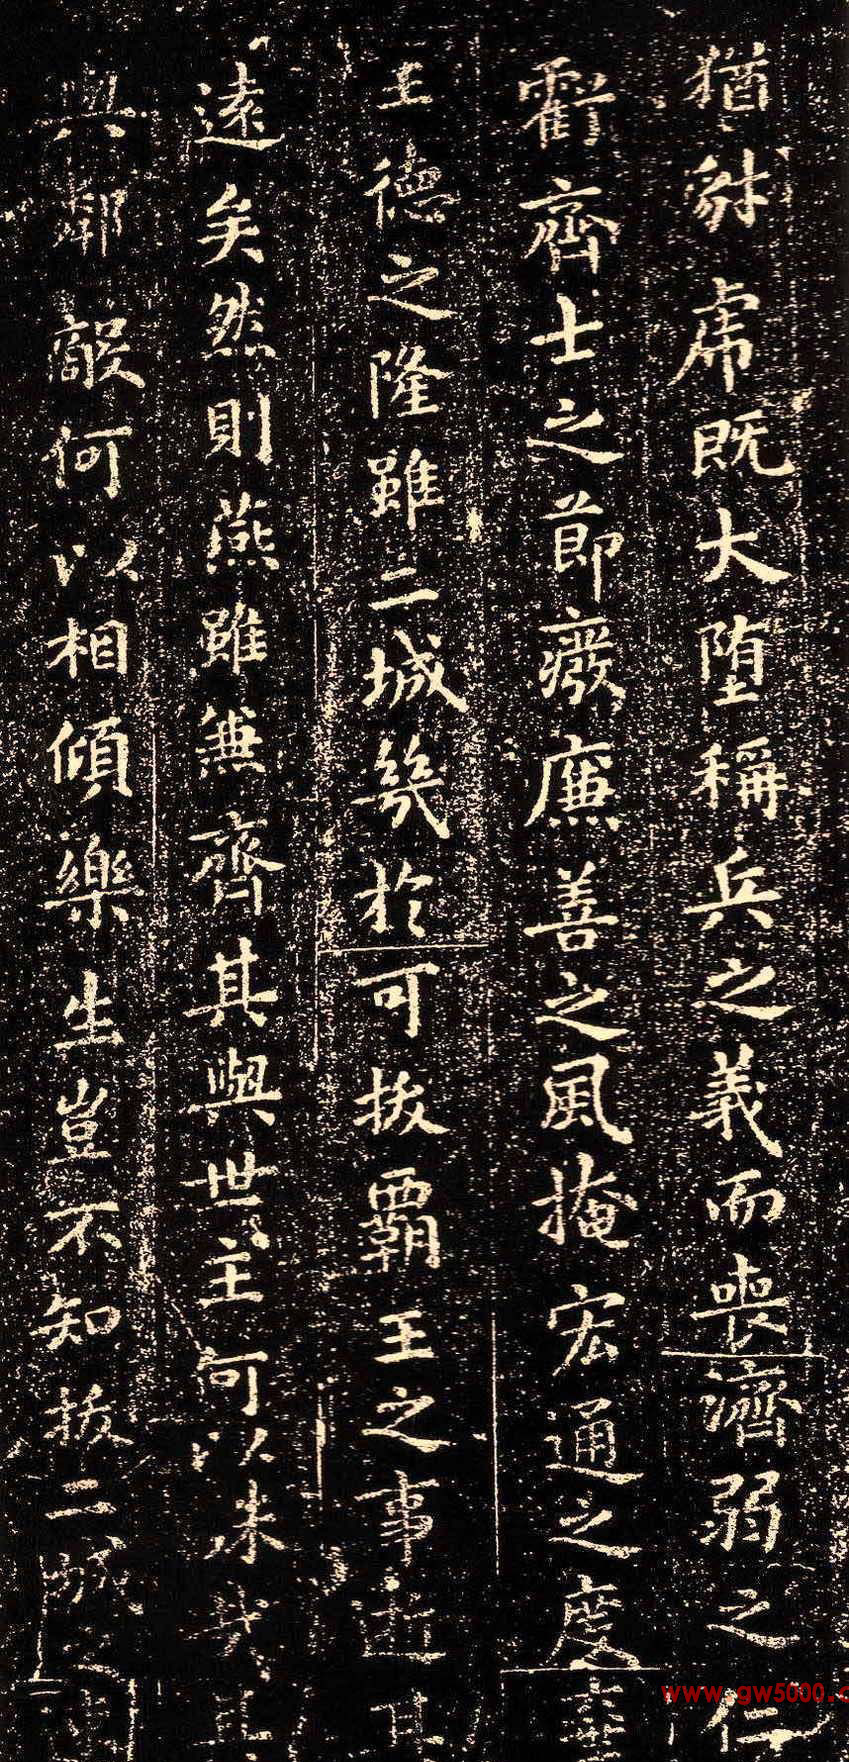 猶豺虎既大墮稱兵之義而喪濟弱之仁
虧齊士之節癈廉善之風掩宏通之度棄
王德之隆雖二城幾於可拔霸王之事逝其
遠矣然則燕雖兼齊其與世主何以殊哉其
與鄰敵何以相傾樂生豈不知拔二城之
www.gw5000.c